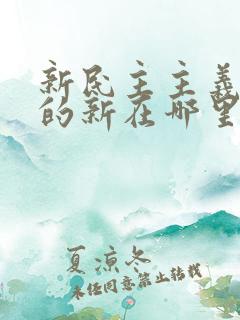 新民主主义
的新在哪里
夏凉冬
未经同意禁止转载